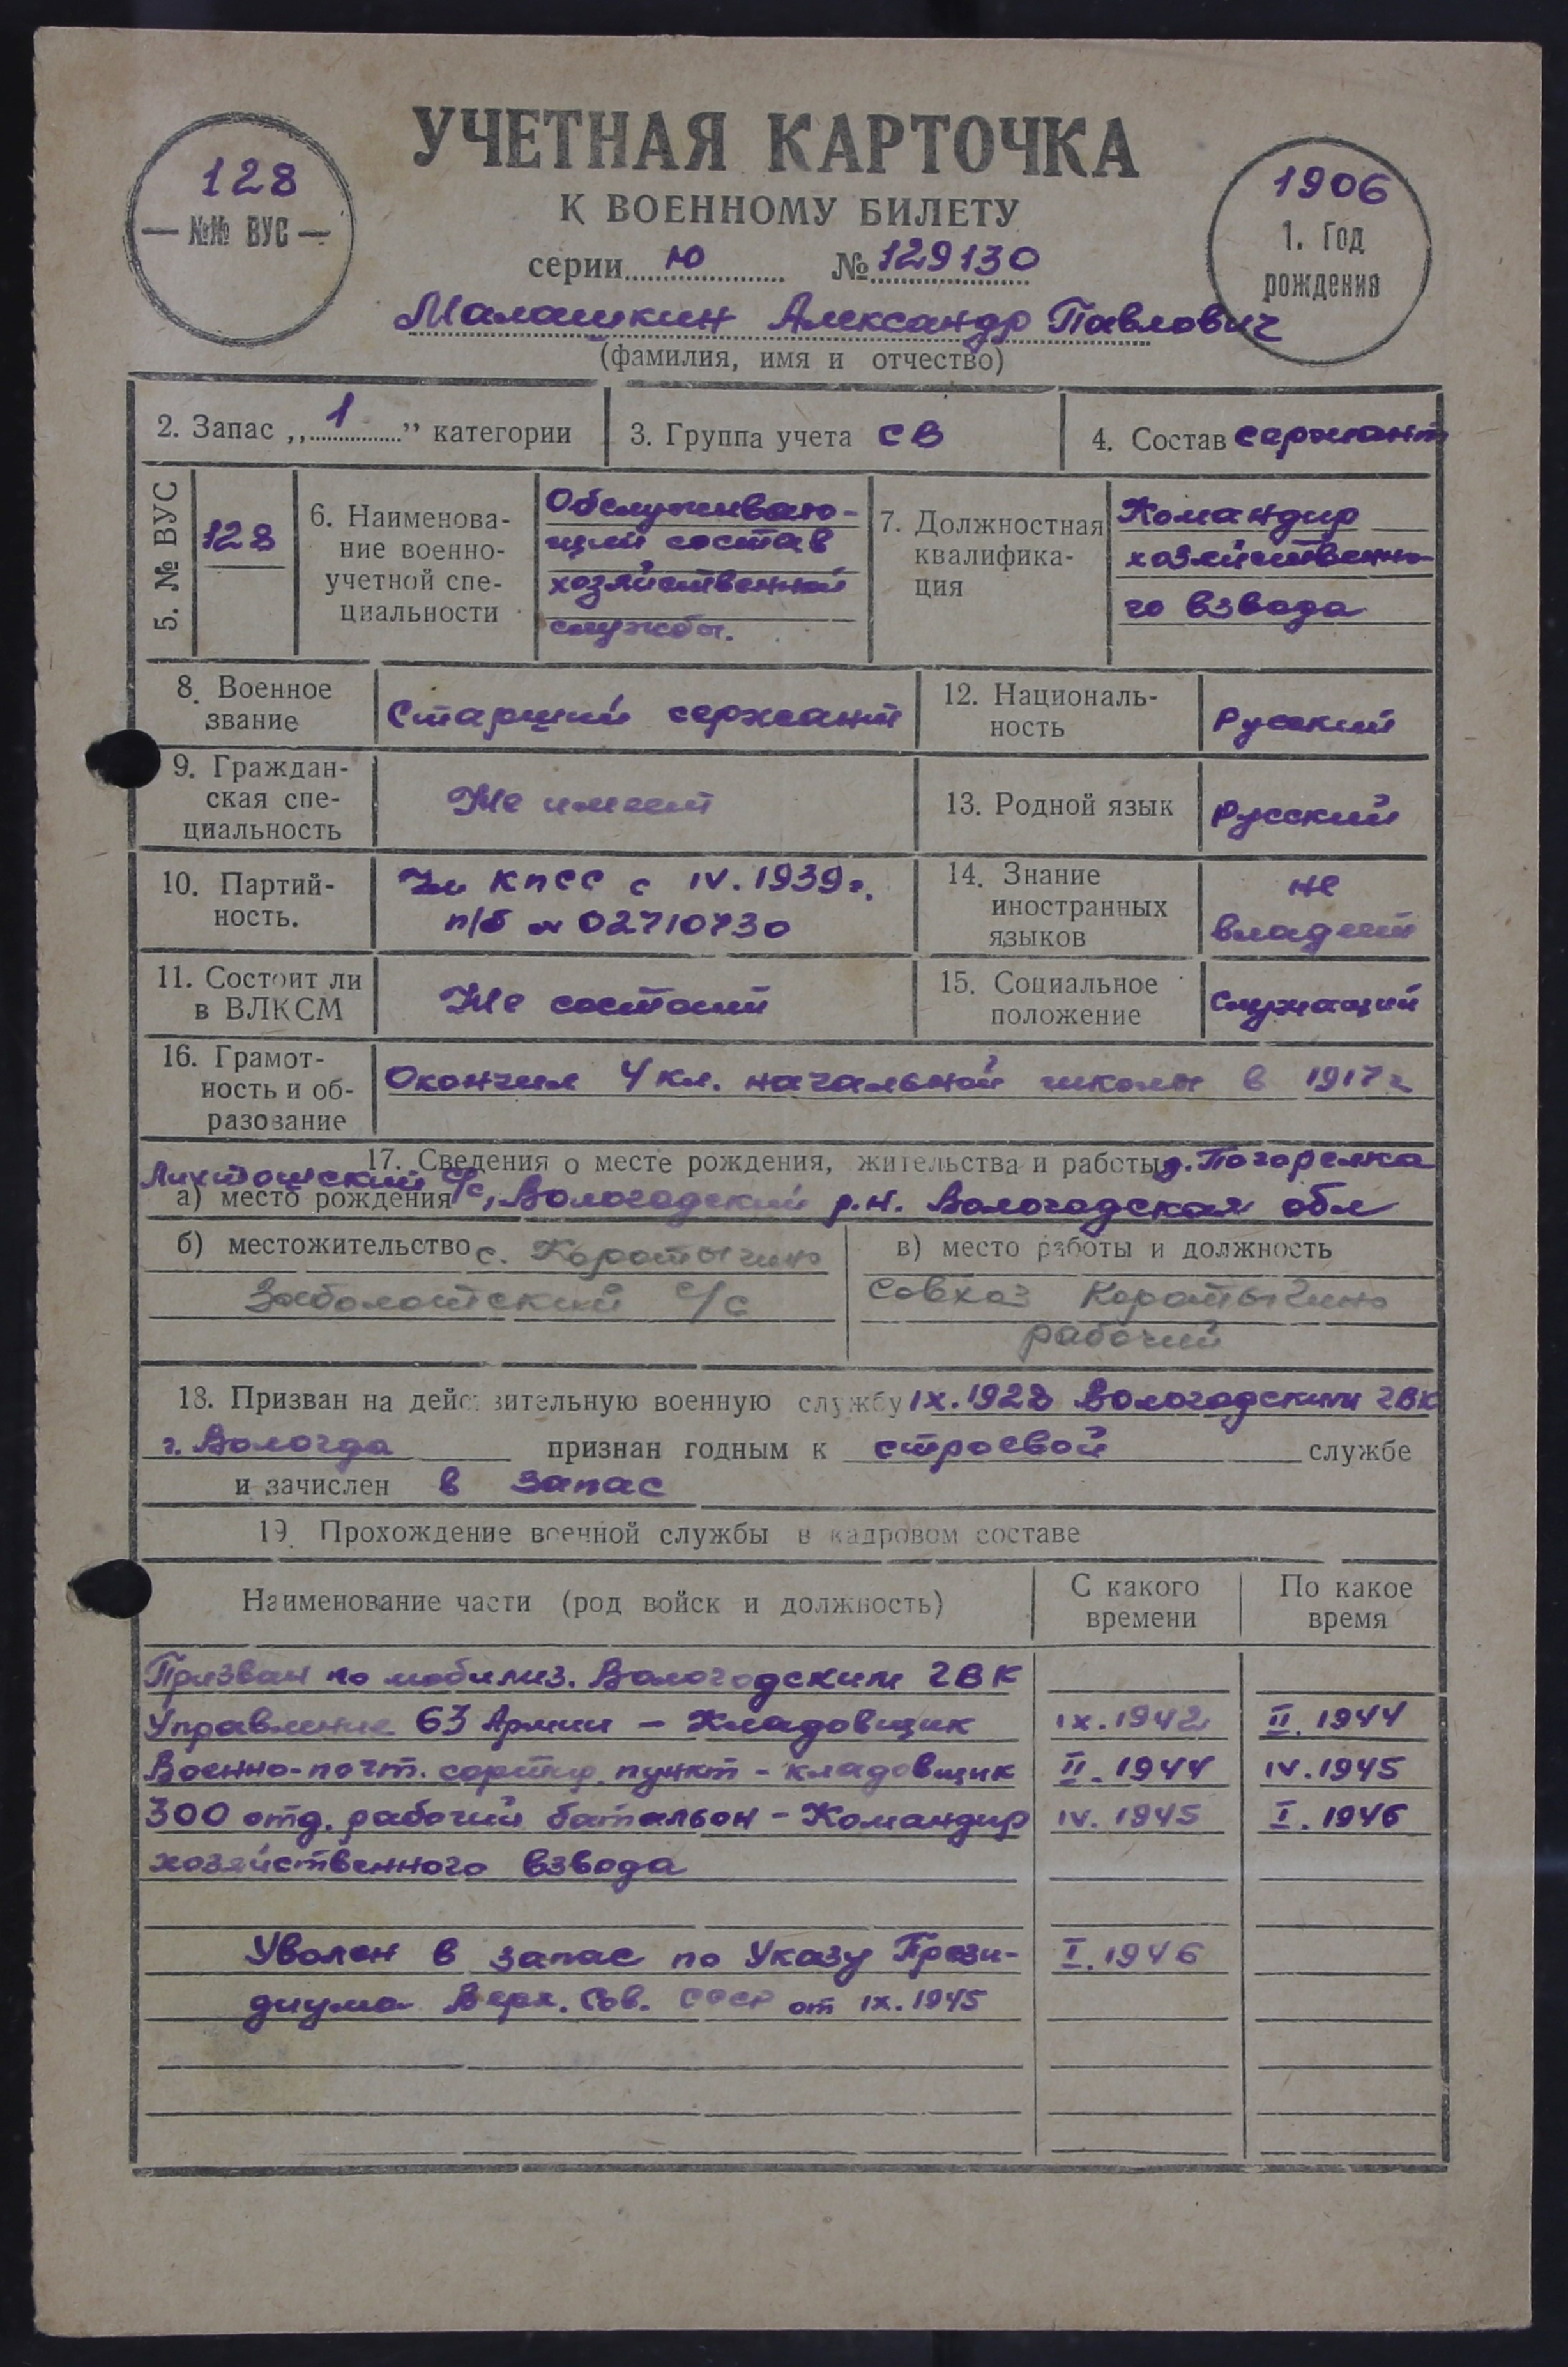 УЧЕТНАЯ КАРТОЧКА
К ВОЕННОМУ БИЛЕТУ
128
— №№ ВУС —
1906
1. Год
рождения
серии Ю № 129130
Малашкин Александр Павлович
(фамилия, имя и отчество)
2. Запас „1” категории
3. Группа учета СВ
4. Состав сержант
5. № ВУС
128
6. Наименова-
ние военно-
учетной спе-
циальности
Обслуживаю-
щий состав
хозяйственной
службы.
7. Должностная
квалифика-
ция
Командир
хозяйственно-
го взвода
8. Военное
звание
Старший сержант
12. Националь-
ность
Русский
9. Граждан-
ская спе-
циальность
Не имеет
13. Родной язык
Русский
10. Партий-
ность.
Чл КПСС с IV. 1939 г.
п/б № 02710730
14. Знание
иностранных
языков
не
владеет
11. Состоит ли
в ВЛКСМ
Не состоит
15. Социальное
положение
Служащий
16. Грамот-
ность и об-
разование
Окончил 4 кл. начальной школы в 1917 г
17. Сведения о месте рождения, жительства и работы д. Погорелка
Лихтошский с/с, Вологодский р.н. Вологодская обл
а) место рождения
б) местожительство с. Коротыгино
Заболотский с/с
в) место работы и должность
Совхоз Коротыгино
рабочий
18. Призван на действительную военную службу IX. 1928 Вологодским ГВК
г. Вологда признан годным к строевой службе
и зачислен в запас
19. Прохождение военной службы в кадровом составе
Наименование части (род войск и должность)
С какого
времени
По какое
время
Призван по мобилиз. Вологодским ГВК
Управление 63 Армии – Кладовщик IX. 1942 II. 1944
Военно-почт. сортир. пункт – кладовщик II. 1944 IV. 1945
300 отд. рабочий батальон – Командир IV. 1945 I. 1946
хозяйственного взвода
Уволен в запас по Указу Прези- I. 1946
диума Верх. Сов. СССР от IX. 1945